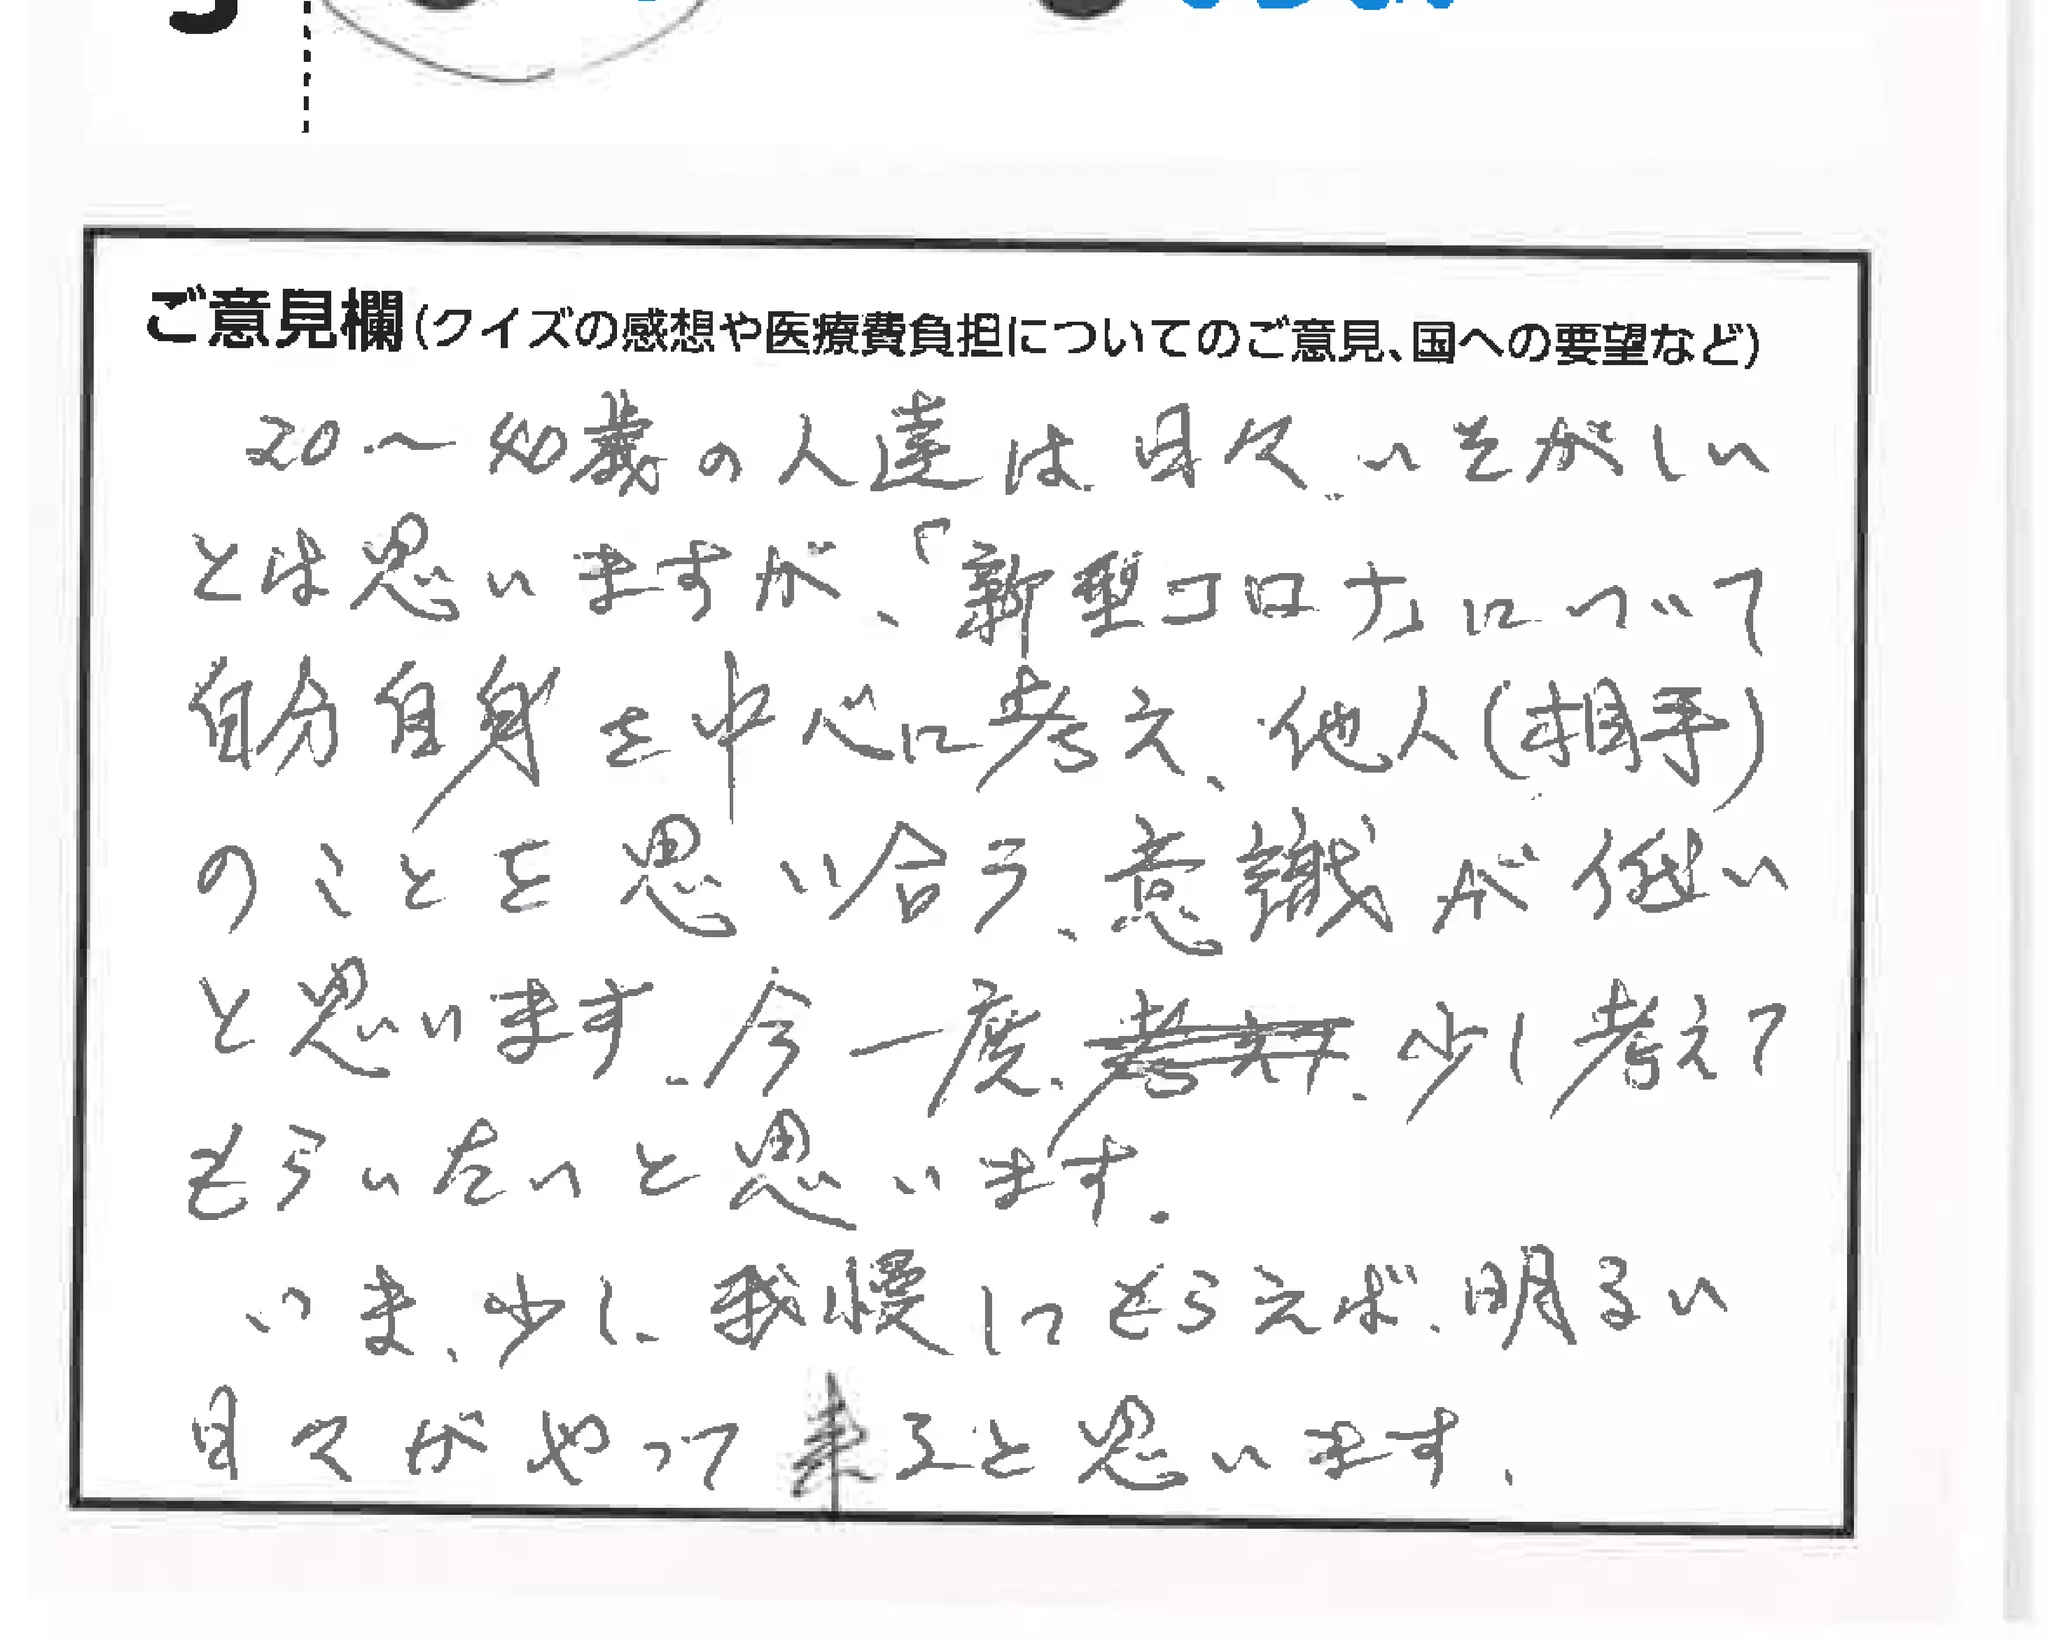 ご意見欄(クイズの感想や医療費負担についてのご意見、国への要望など)
20~40歳の人達は日々いそがしい
とは思いますが、「新型コロナ」について
自分自身を中心に考え、他人(相手)
のことを思い合う、意識が低い
と思います。今一度、考えて、少し考えて
もらいたいと思います。
いま、少し、我慢してもらえば、明るい
日々がやって来ると思います。